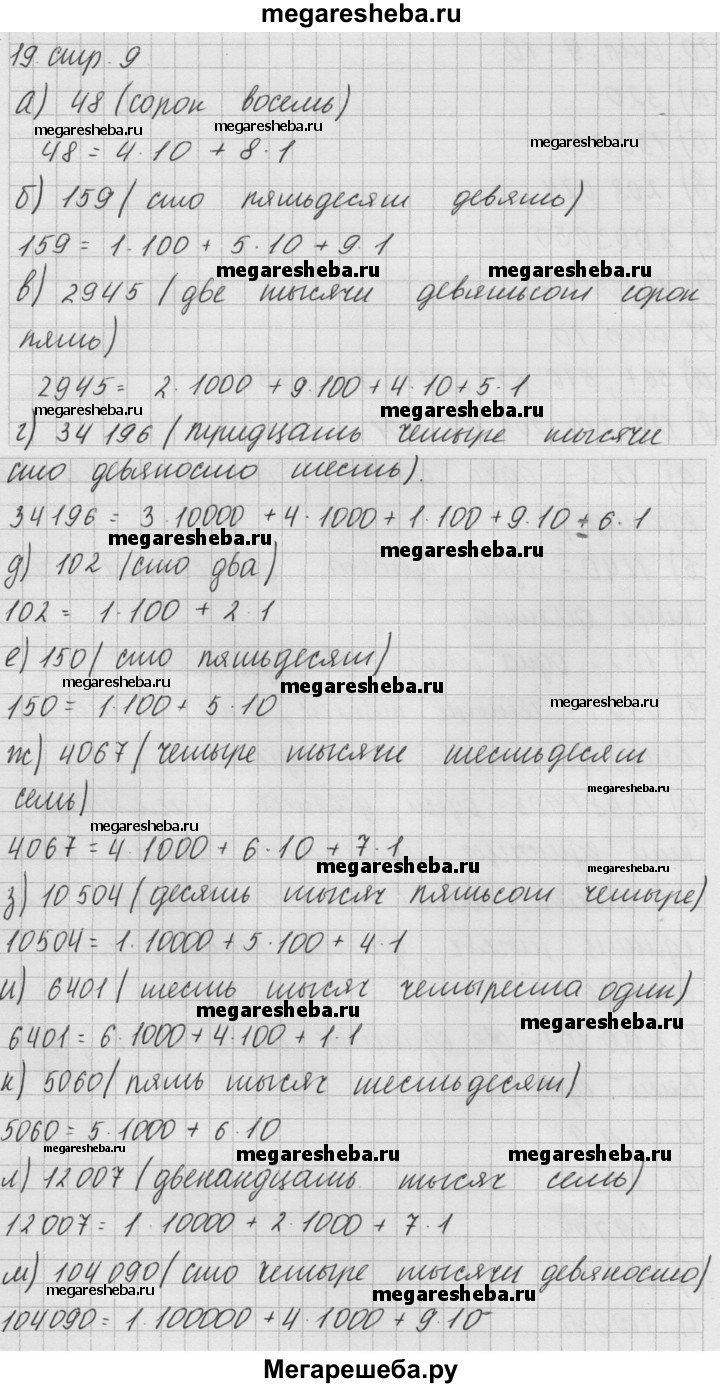 megaresheba.ru
19. стр. 9
а) 48 (сорок восемь)
megaresheba.ru megaresheba.ru megaresheba.ru
48 = 4·10 + 8·1
б) 159 (сто пятьдесят девять)
159 = 1·100 + 5·10 + 9·1
megaresheba.ru megaresheba.ru
в) 2945 (две тысячи девятьсот сорок
пять)
2945 = 2·1000 + 9·100 + 4·10 + 5·1
megaresheba.ru megaresheba.ru
г) 34 196 (тридцать четыре тысячи
сто девяносто шесть).
34196 = 3·10000 + 4·1000 + 1·100 + 9·10 + 6·1
megaresheba.ru megaresheba.ru
д) 102 (сто два)
102 = 1·100 + 2·1
е) 150 (сто пятьдесят)
megaresheba.ru megaresheba.ru megaresheba.ru
150 = 1·100 + 5·10
ж) 4067 (четыре тысячи шестьдесят
megaresheba.ru
семь)
megaresheba.ru
4067 = 4·1000 + 6·10 + 7·1
megaresheba.ru megaresheba.ru
з) 10 504 (десять тысяч пятьсот четыре)
10504 = 1·10000 + 5·100 + 4·1
и) 6401 (шесть тысяч четыреста один)
megaresheba.ru megaresheba.ru
6401 = 6·1000 + 4·100 + 1·1
к) 5060 (пять тысяч шестьдесят)
5060 = 5·1000 + 6·10
megaresheba.ru megaresheba.ru megaresheba.ru
л) 12 007 (двенандцать тысяч семь)
12 007 = 1·10000 + 2·1000 + 7·1
м) 104 090 (сто четыре тысячи девяносто)
megaresheba.ru megaresheba.ru
104090 = 1·100000 + 4·1000 + 9·10
Мегарешеба.ру